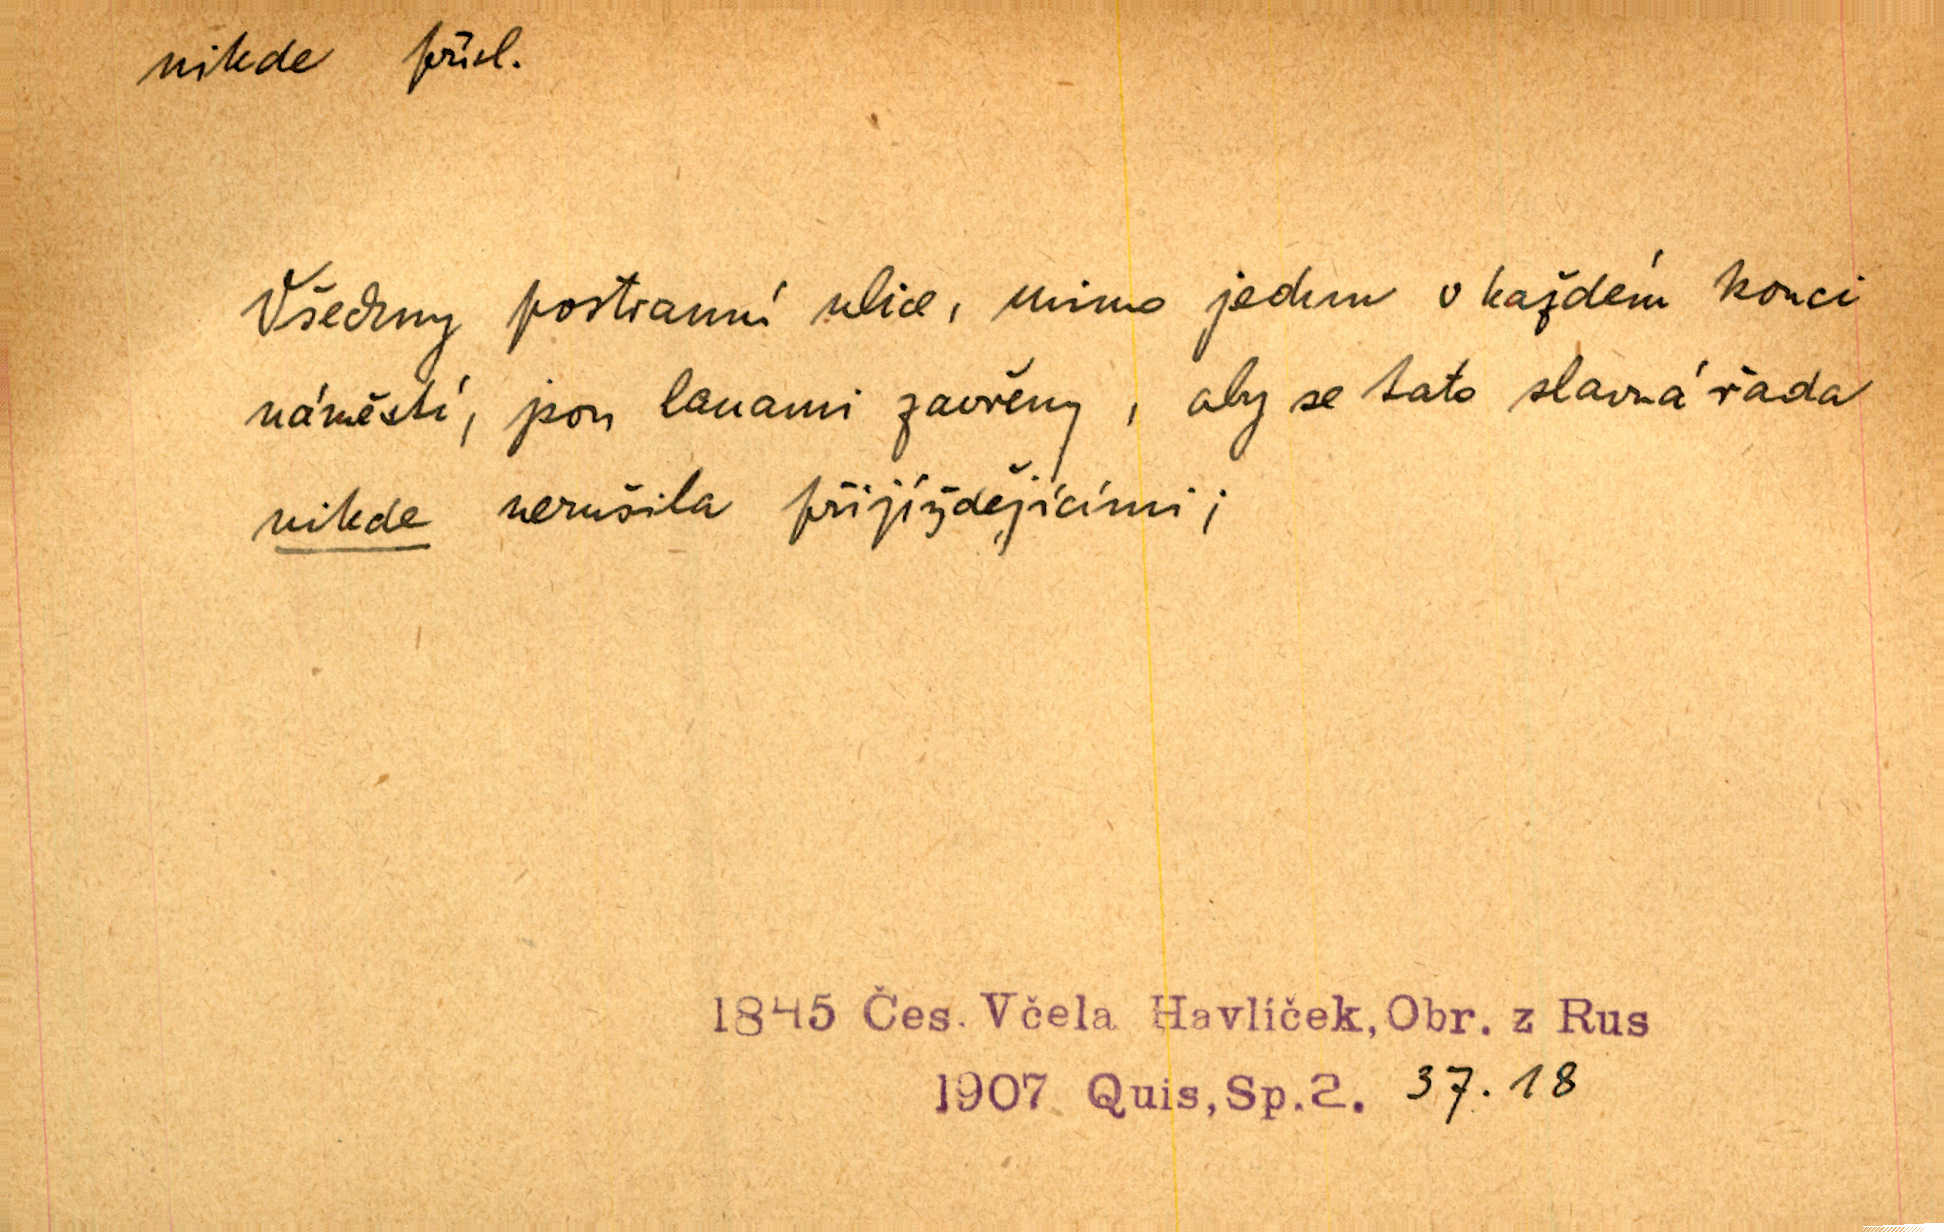 nikde přísl.
Všechny postranní ulice, mimo jednu v každém konci
náměstí, jsou lanami zavřeny, aby se tato slavná řada
nikde nerušila přijíždějícími;
1845 Čes. Včela Havlíček, Obr. z Rus
1907 Quis, Sp. 2. 37. 18